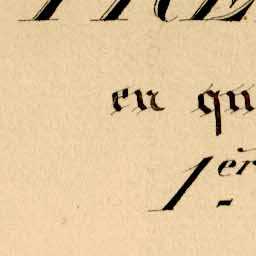 en qu
1er